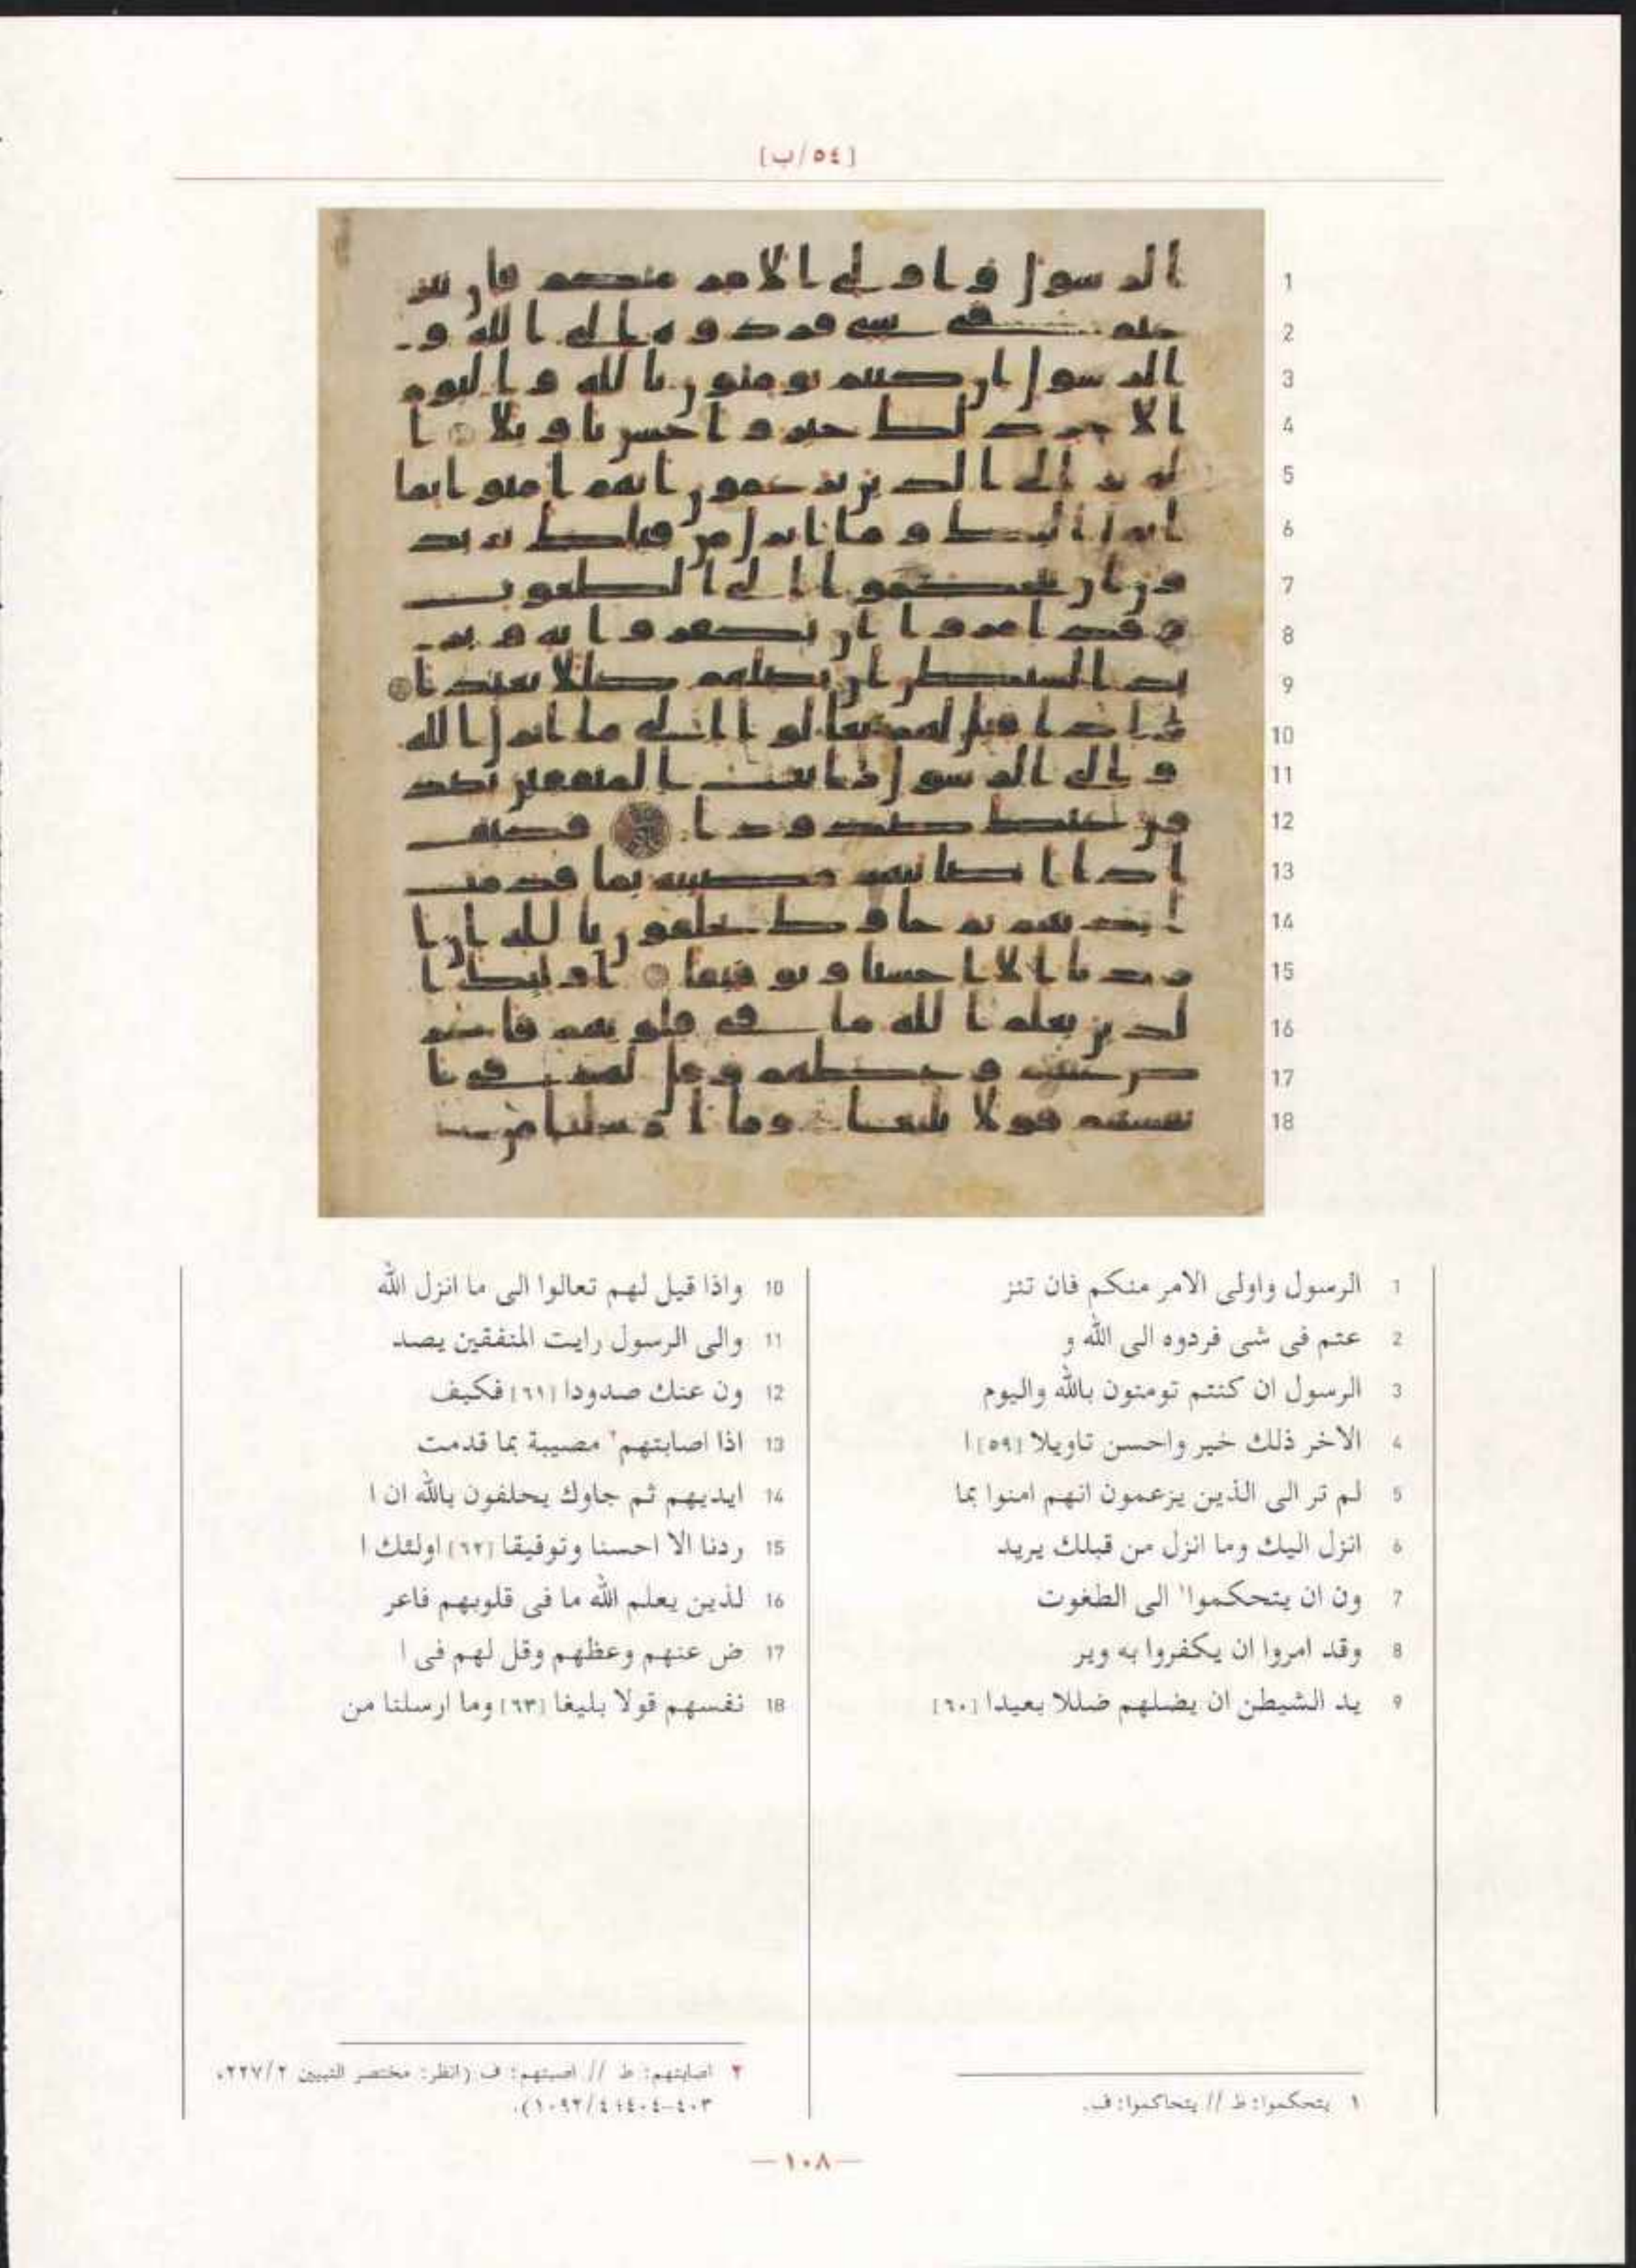 [٥٤/ب]
1 الرسول واولى الامر منكم فان تنز
2 عتم فى شى فردوه الى الله و
3 الرسول ان كنتم تومنون بالله واليوم
4 الاخر ذلك خير واحسن تاويلا [٥٩] ا
5 لم تر الى الذين يزعمون انهم امنوا بما
6 انزل اليك وما انزل من قبلك يريد
7 ون ان يتحكموا١ الى الطغوت
8 وقد امروا ان يكفروا به وير
9 يد الشيطن ان يضلهم ضللا بعيدا [٦٠]
10 واذا قيل لهم تعالوا الى ما انزل الله
11 والى الرسول رايت المنفقين يصد
12 ون عنك صدودا [٦١] فكيف
13 اذا اصابتهم٢ مصيبة بما قدمت
14 ايديهم ثم جاوك يحلفون بالله ان ا
15 ردنا الا احسنا وتوفيقا [٦٢] اولئك ا
16 لذين يعلم الله ما فى قلوبهم فاعر
17 ض عنهم وعظهم وقل لهم فى ا
18 نفسهم قولا بليغا [٦٣] وما ارسلنا من
١ يتحكموا: ط // يتحاكموا: ف.
٢ اصابتهم: ط // اصبتهم: ف (انظر: مختصر التبيين ٢٢٧/٢،
٤٠٣-٤٠٤؛ ١٠٩٢/٤).
—١٠٨—